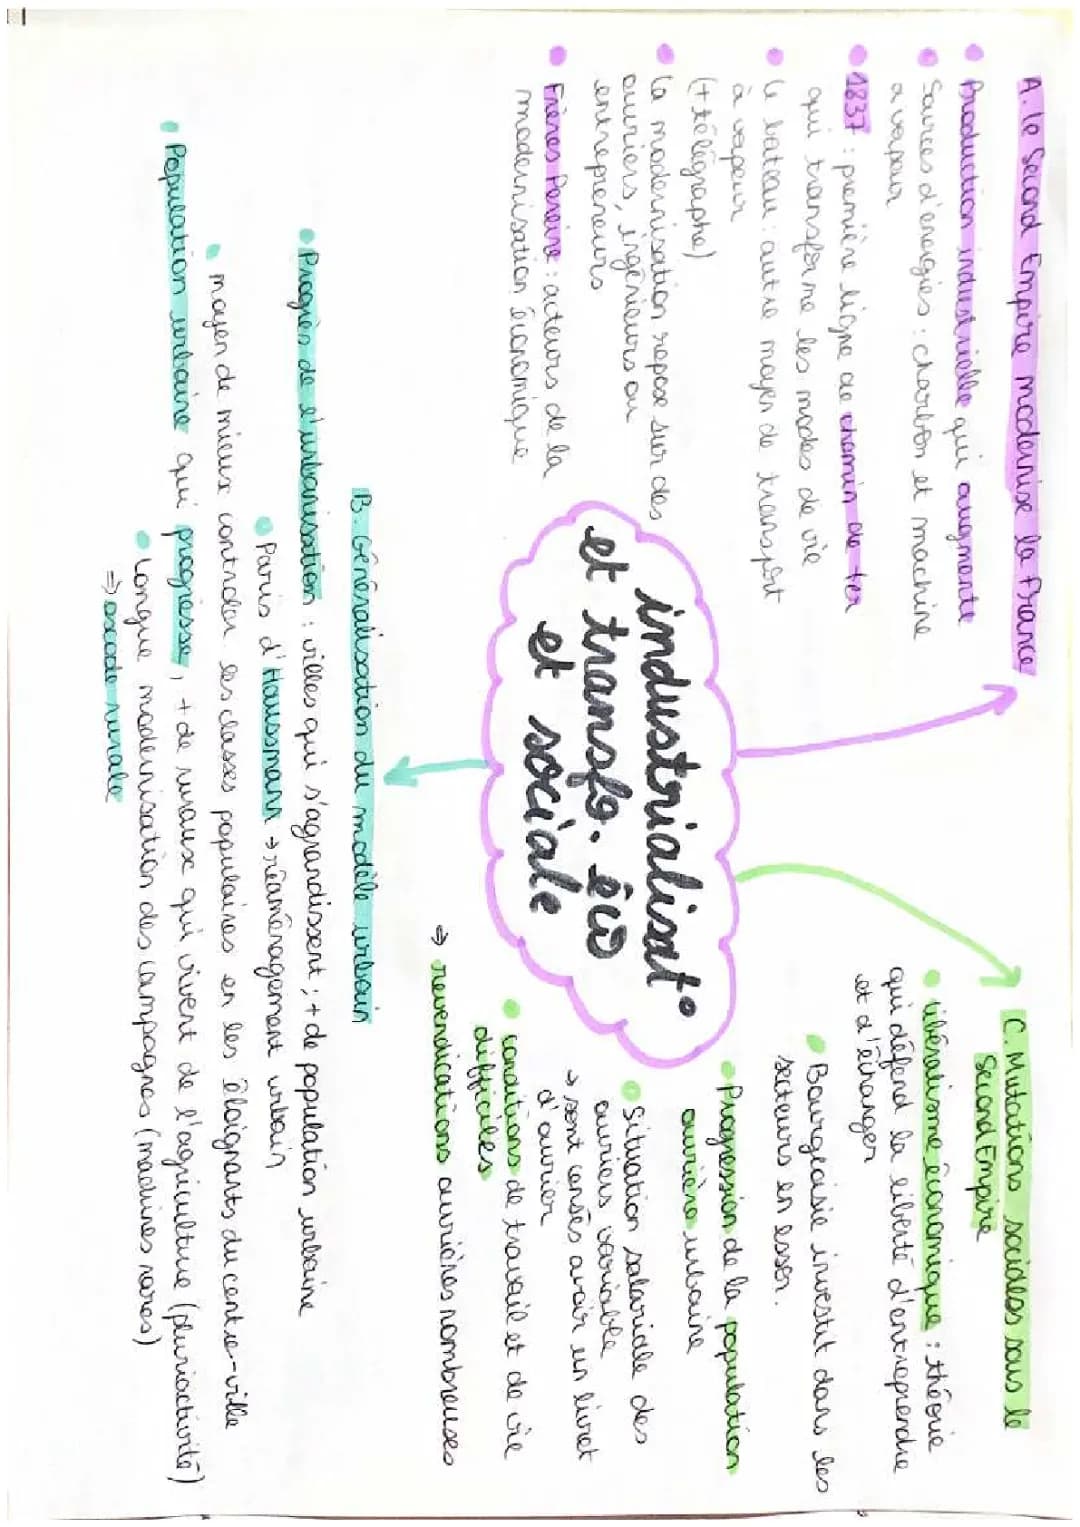 industrialisat°
et transfo. éco
et sociale
A. le Second Empire modernise la France
• Production industrielle qui augmente
• Sources d'énergies : charbon et machine
a vapeur
• 1837 : première ligne de chemin de fer
qui transforme les modes de vie
• le bateau : autre moyen de transport
à vapeur
(+ télégraphe)
• la modernisation repose sur des
ouriers, ingénieurs ou
entrepreneurs
• Frères Pereire : acteurs de la
modernisation économique
B. Généralisation du modèle urbain
• Progrès de l'urbanisation : villes qui s'agrandissent ; + de population urbaine
• Paris d'Haussmann → réaménagement urbain
• moyen de mieux controler les classes populaires en les éloignants du centre-ville
• Population urbaine qui progresse, + de ruraux qui vivent de l'agriculture (pluriactivité)
• Longue modernisation des campagnes (machines rares)
⇒ exode rurale
C. Mutations sociales sous le
Second Empire
• libéralisme économique : théorie
qui défend la liberté d'entreprendre
et d'échanger
• Bourgeoisie investit dans les
secteurs en essor.
• Progression de la population
ouvrière urbaine
• Situation salariale des
ouvriers variable
→ sont censés avoir un livret
d'ouvrier
• conditions de travail et de vie
difficiles
⇒ revendications ouvrières nombreuses